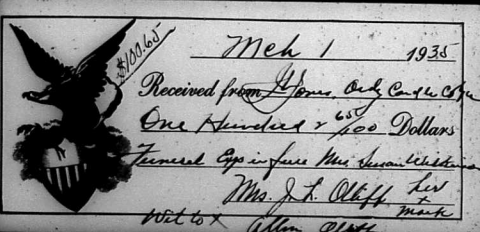 $100.65
Mch 1 1935
Received from Jones, Ordy Candler Co Ga
One Hundred & 65/100 Dollars
Funeral Exp in full Mrs. Susan
Mrs. J. L. Olliff her x mark
Wit to x